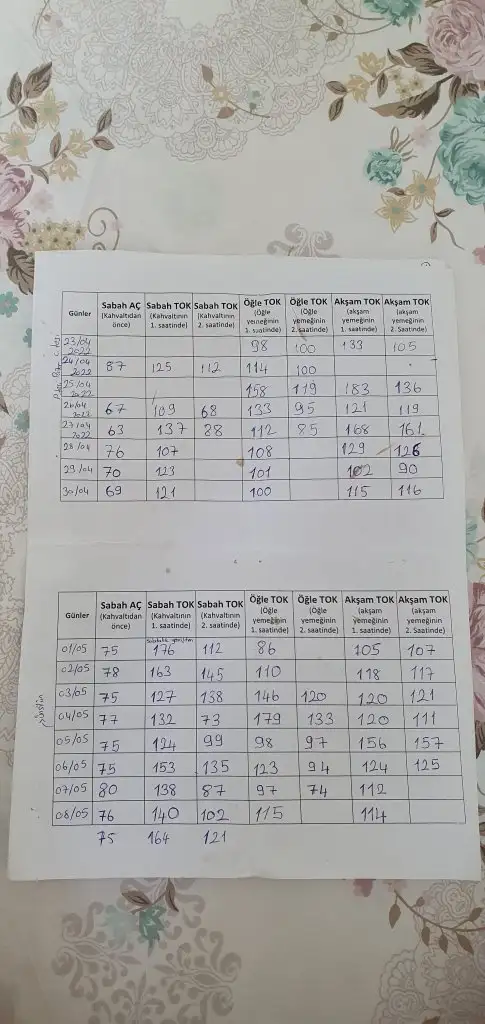 Günler Sabah AÇ (Kahvaltıdan önce) Sabah TOK (Kahvaltının 1. saatinde) Sabah TOK (Kahvaltının 2. saatinde) Öğle TOK (Öğle yemeğinin 1. saatinde) Öğle TOK (Öğle yemeğinin 2. saatinde) Akşam TOK (akşam yemeğinin 1. saatinde) Akşam TOK (akşam yemeğinin 2. Saatinde)
23/04 2022 98 100 133 105
24/04 2022 87 125 112 114 100
25/04 2022 158 119 183 136
26/04 2022 67 109 68 133 95 121 119
27/04 2022 63 137 88 112 85 168 161
28/04 76 107 108 129 126
29/04 70 123 101 102 90
30/04 69 121 100 115 116
Günler Sabah AÇ (Kahvaltıdan önce) Sabah TOK (Kahvaltının 1. saatinde) Sabah TOK (Kahvaltının 2. saatinde) Öğle TOK (Öğle yemeğinin 1. saatinde) Öğle TOK (Öğle yemeğinin 2. saatinde) Akşam TOK (akşam yemeğinin 1. saatinde) Akşam TOK (akşam yemeğinin 2. saatinde)
01/05 75 176 112 86 105 107
02/05 78 163 145 110 118 117
03/05 75 127 138 146 120 120 121
04/05 77 132 73 179 133 120 111
05/05 75 124 99 98 97 156 157
06/05 75 153 135 123 94 124 125
07/05 80 138 87 97 74 112
08/05 76 140 102 115 114
75 164 121